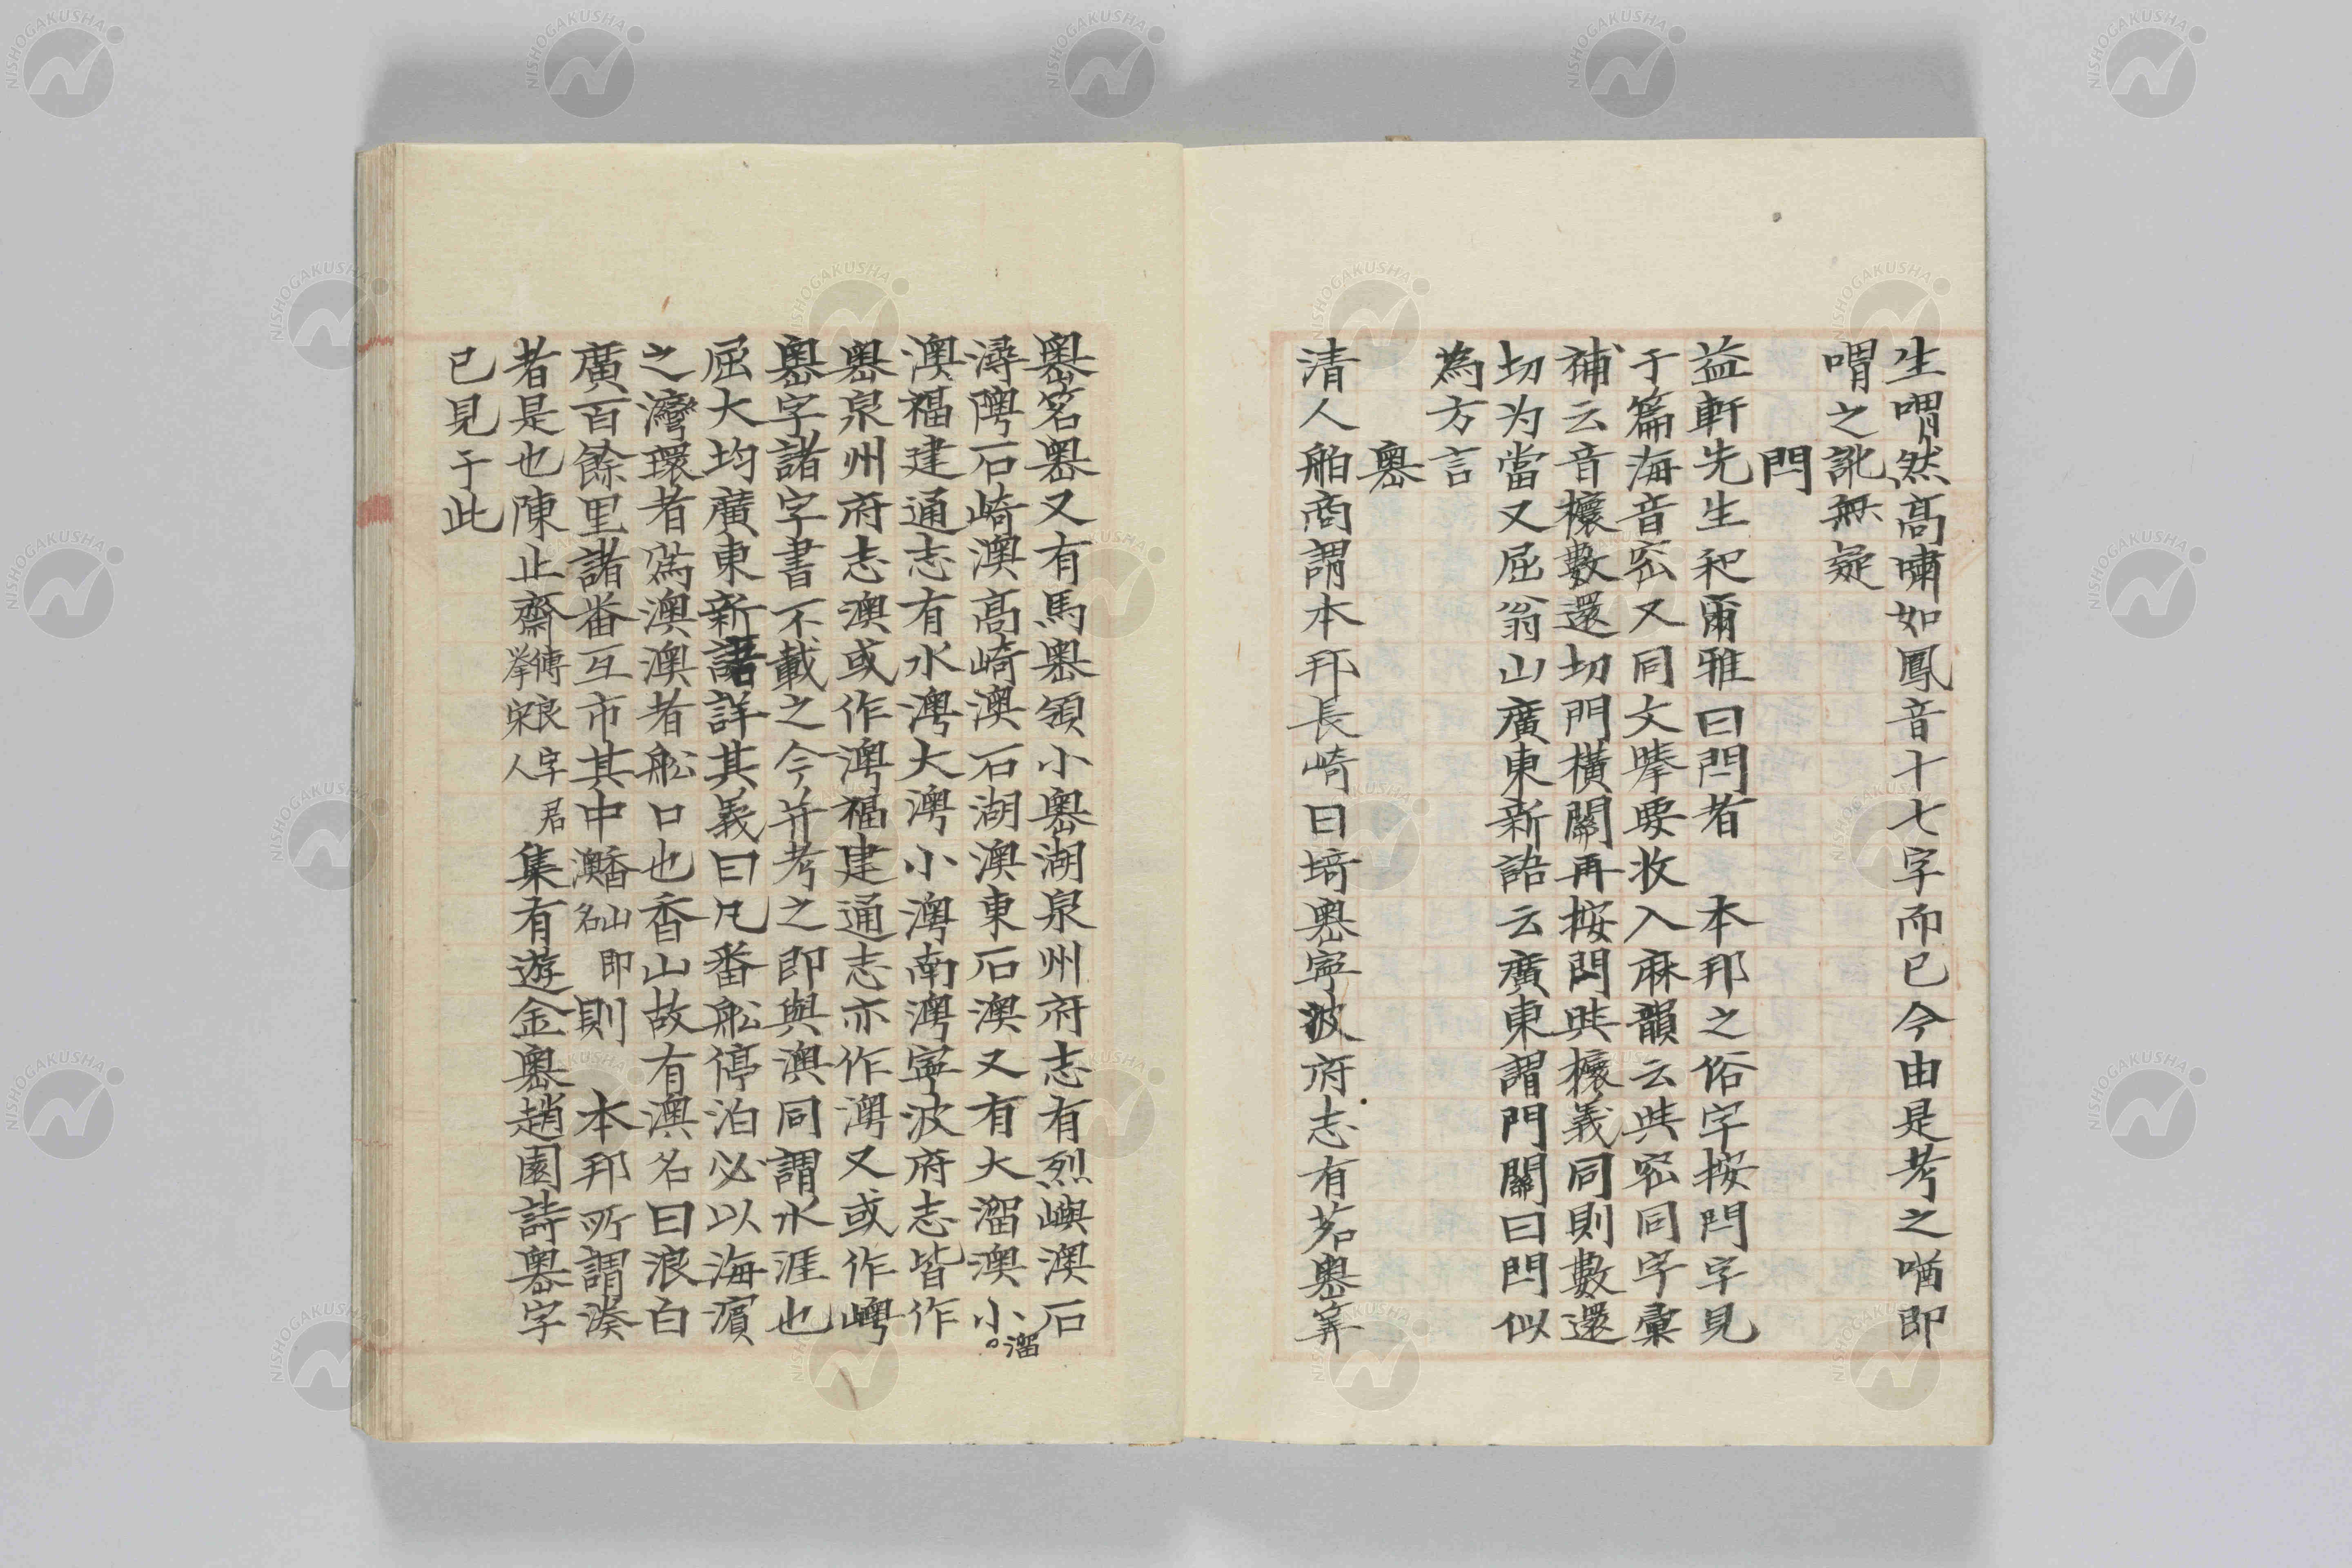 生喟然高嘯如鳳音十七字而已今由是考之喟即
喟之訛無疑
閂
益軒先生和爾雅曰閂者　本邦之俗字按閂字見
于篇海音宻又同文擧要收入麻韻云與宻同字彙
補云音櫦數還切門橫關再按閂與櫦義同則數還
切为當又屈翁山廣東新語云廣東謂門關曰閂似
為方言
嶴
清人舶商謂本邦長崎曰埼嶴寧波府志有茗嶴筭
嶴茗嶴又有馬嶴領小嶴湖泉州府志有烈嶼澳石
潯澚石崎澳高崎澳石湖澳東石澳又有大溜澳小溜
澳福建通志有水澚大澚小澚南澚寧波府志皆作
嶴泉州府志澳或作澚福建通志亦作澚又或作㠗
嶴字諸字書不載之今并考之即與澳同謂水涯也
屈大均廣東新語詳其義曰凡番舩停泊必以海濵
之灣環者為澳澳者舩口也香山故有澳名曰浪白
廣百餘里諸番互市其中香山即澳名則　本邦所謂湊
者是也陳止齋傅良字君挙宋人集有遊金嶴趙園詩嶴字
已見于此
NISHOGAKUSHA